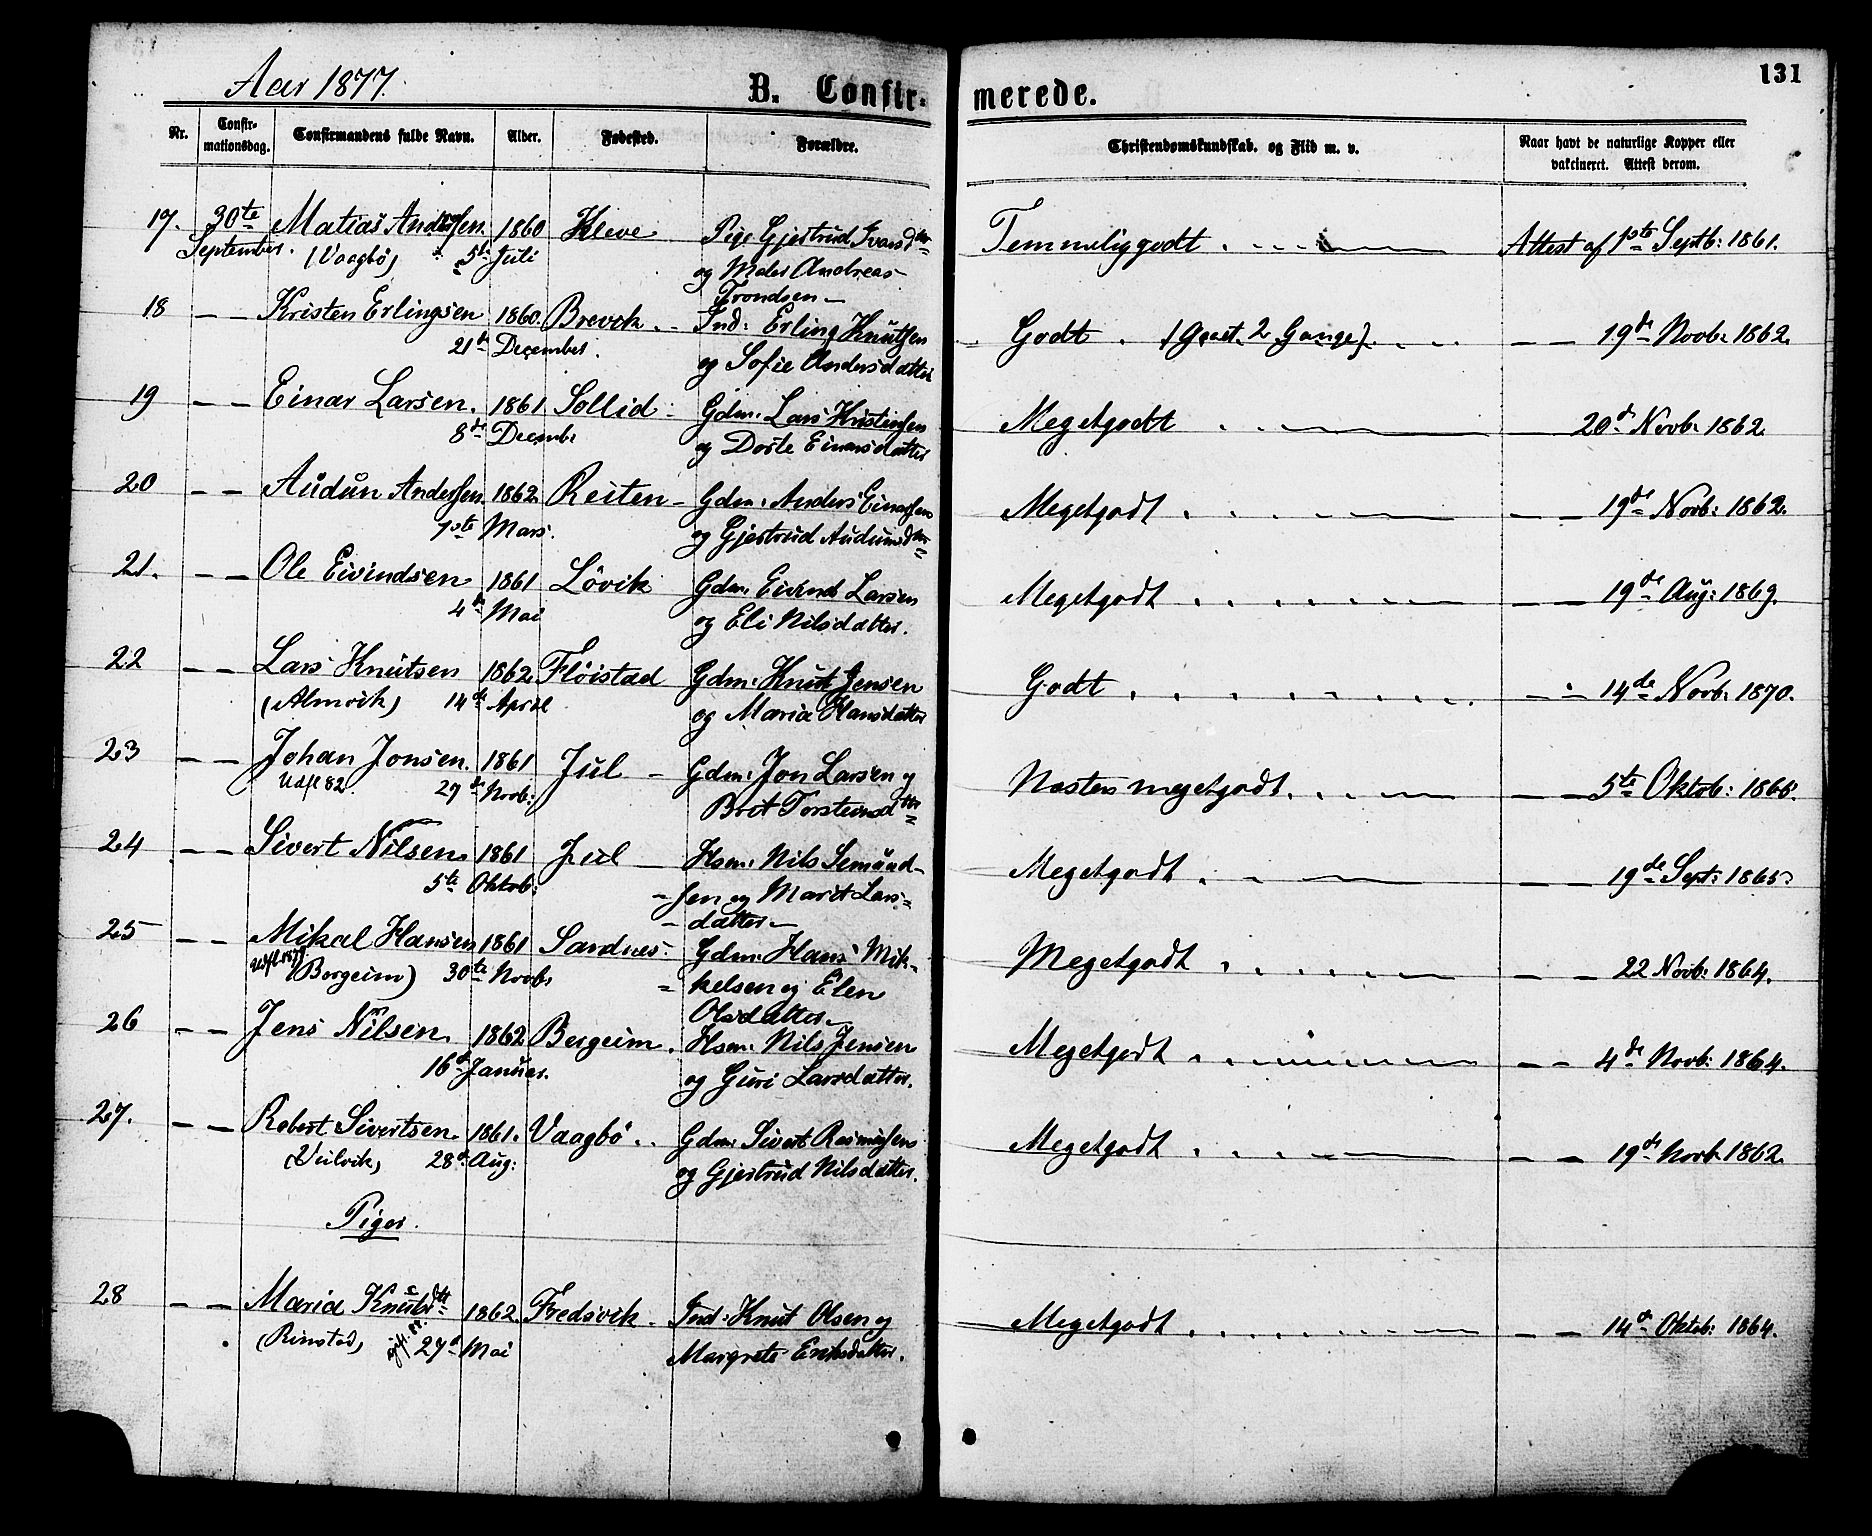 Aar 1877.
B. Confir-
merede.
131
Nr.
Confir-
mationsdag.
Confirmandens fulde Navn.
Alder.
Fødested.
Forældre.
Christendomskundskab. og Flid m. v.
Naar havt de naturlige Kopper eller
vakcineret. Attest derom.
17. 30te Matias Andersen. 1860 Kleve Pige Gjertrud Ivarsdtr Temmelig godt Attest af 1ste Septb: 1861.
September. (Vaagbø) 5te Juli og Andreas
Trondsen
18 — — Kristen Erlingsen 1860. Brevik. Ind: Erling Knutsen Godt. (Gaaet 2 Gange) — — 19de Novb: 1862.
21de December. og Sofie Andersdatter
19 — — Einar Larsen. 1861 Sollid Gdm: Lars Kristensen Megetgodt 20de Novb: 1862
8de Decembr og Dorte Einarsdatter
20 — — Audun Andersen 1862. Reiten Gdm: Anders Einarsen Megetgodt — — 19de Novb: 1862.
1ste Mars. og Gjertrud Audunsdtr
21. — — Ole Eivindsen 1861 Løvik Gdm: Eivind Larsen Megetgodt — — 19de Aug: 1869.
4de Mai og Eli Nilsdatter.
22 — — Lars Knutsen 1862. Fløistad Gdm: Knut Jensen Godt — 14de Novb: 1870.
(Almvik) 14de April og Maria Hansdatter
23 — — Johan Jonsen. 1861 Jul Gdm: Jon Larsen og Næsten megetgodt. — — 5te Oktob: 1866.
Udfl 82. 29de Novb: Brot Torsteinsdtr
24 — — Sivert Nilsen. 1861 Jul Hsm: Nils Semund- Megetgodt — — 19de Sept: 1865.
5te Oktob: sen og Marit Lars-
datter
25 — — Mikal Hansen 1861 Sandnes. Gdm: Hans Mik- Megetgodt — — 22 Novb: 1864.
(Bergeim) 30te Novb: kelsen og Elen
Olsdatter
26 — — Jens Nilsen. 1862 Bergeim. Hsm: Nils Jensen Megetgodt — — 4de Novb: 1864.
16de Januar. og Guri Larsdatter.
27. — — Robert Sivertsen. 1861. Vaagbø Gdm: Sivert Rasmusen Megetgodt — — 19de Novb 1862.
28de Aug: og Gjertrud Nilsdatter.
Piger.
28 — — Maria Knutsdtt 1862. Fredsvik Ind: Knut Olsen og Megetgodt — — 14de Oktob: 1864.
(Rinstad) 27de Mai Margrete Eriksdatter.